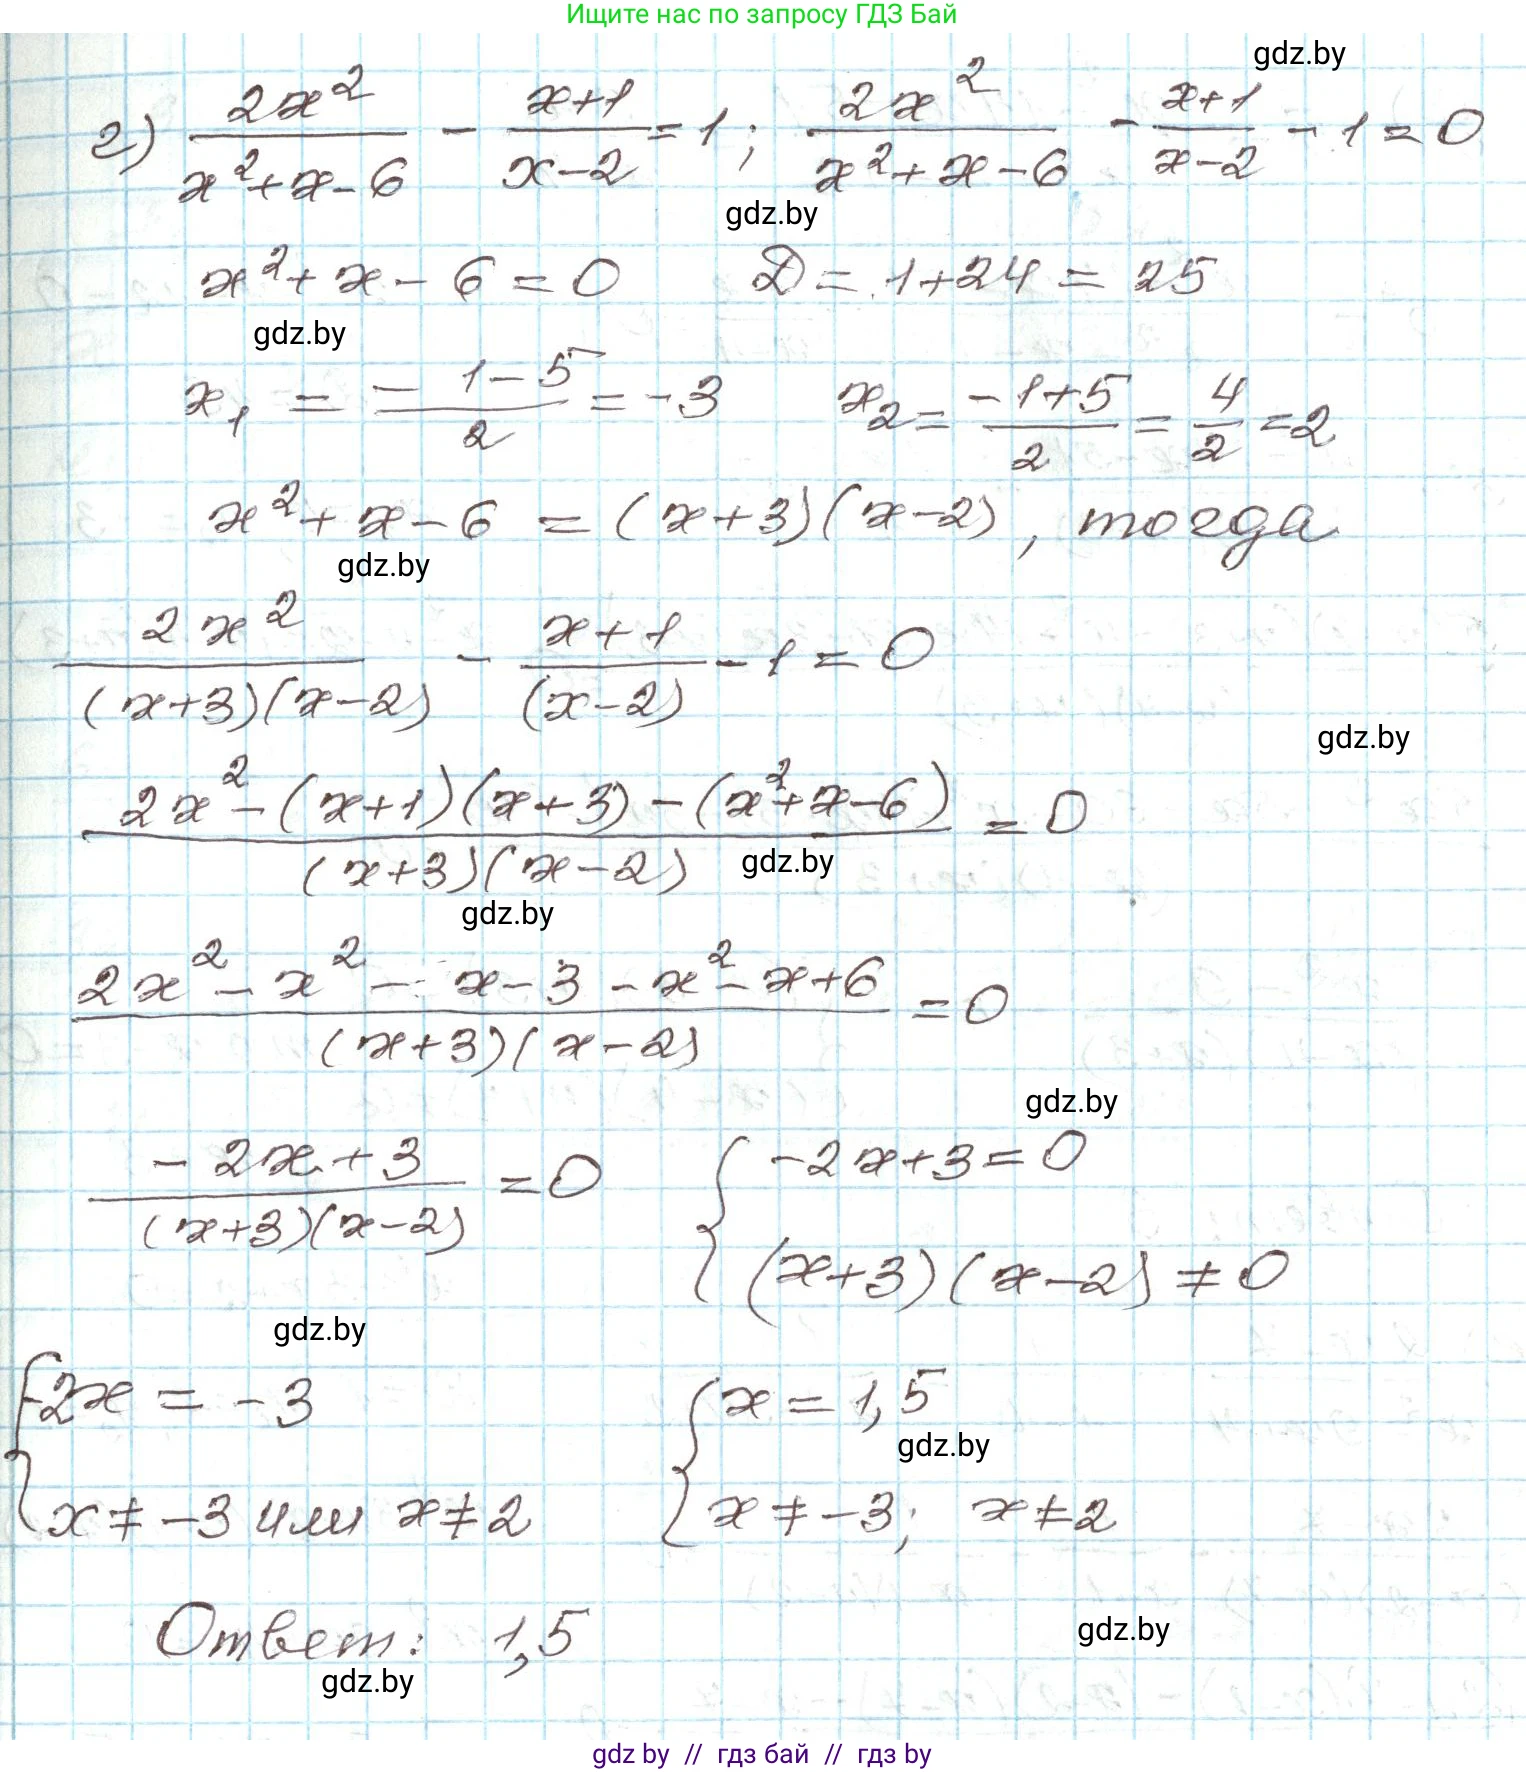 Ищите нас по запросу ГДЗ Бай
gdz.by
г) 2x²/(x²+x-6) - (x+1)/(x-2) = 1; 2x²/(x²+x-6) - (x+1)/(x-2) - 1 = 0
gdz.by
x²+x-6=0 D=1+24=25
gdz.by
x₁ = (-1-5)/2 = -3 x₂ = (-1+5)/2 = 4/2 = 2
x²+x-6 = (x+3)(x-2), тогда
gdz.by
2x²/((x+3)(x-2)) - (x+1)/(x-2) - 1 = 0
gdz.by
(2x²-(x+1)(x+3)-(x²+x-6))/((x+3)(x-2)) = 0
gdz.by
gdz.by
(2x²-x²-x-3-x²-x+6)/((x+3)(x-2)) = 0
gdz.by
(-2x+3)/((x+3)(x-2)) = 0 { -2x+3=0
(x+3)(x-2)≠0
gdz.by
{ -2x = -3 { x = 1,5
gdz.by
x≠-3 или x≠2 x≠-3; x≠2
Ответ: 1,5
gdz.by
gdz.by
gdz.by // гдз бай // гдз by